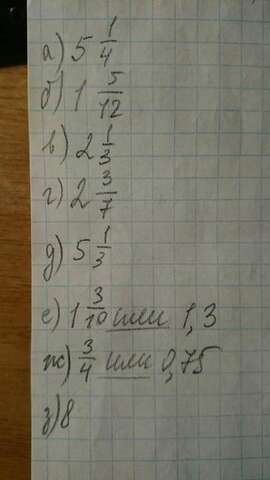 а) 5 1/4
б) 1 5/12
в) 2 1/3
г) 2 3/7
д) 5 1/3
е) 1 3/10 или 1,3
ж) 3/4 или 0,75
з) 8